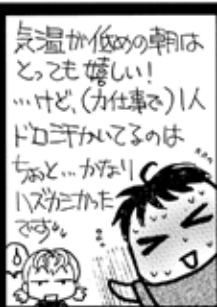 気温が低めの朝は
とっても嬉しい!
…けど、(力仕事で)1人
ドロ汗かいてるのは
ちょっと…かなり
ハズカシかった
です